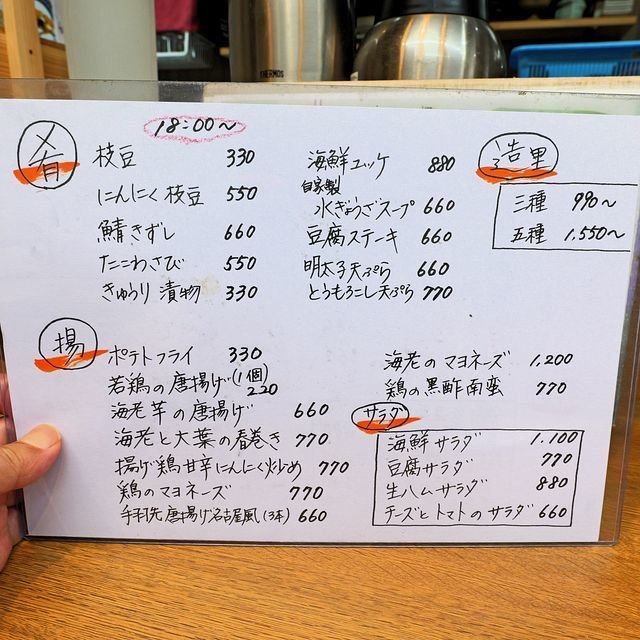 THERMOS
18:00~
肴
枝豆 330
にんにく枝豆 550
鯖きずし 660
たこわさび 550
きゅうり漬物 330
海鮮ユッケ 880
自家製
水ぎょうざスープ 660
豆腐ステーキ 660
明太子天ぷら 660
とうもろこし天ぷら 770
造里
三種 990~
五種 1,550~
揚
ポテトフライ 330
若鶏の唐揚げ(1個) 220
海老芋の唐揚げ 660
海老と大葉の春巻き 770
揚げ鶏甘辛にんにく炒め 770
鶏のマヨネーズ 770
手羽先唐揚げ名古屋風(3本) 660
海老のマヨネーズ 1,200
鶏の黒酢南蛮 770
サラダ
海鮮サラダ 1,100
豆腐サラダ 770
生ハムサラダ 880
チーズとトマトのサラダ 660